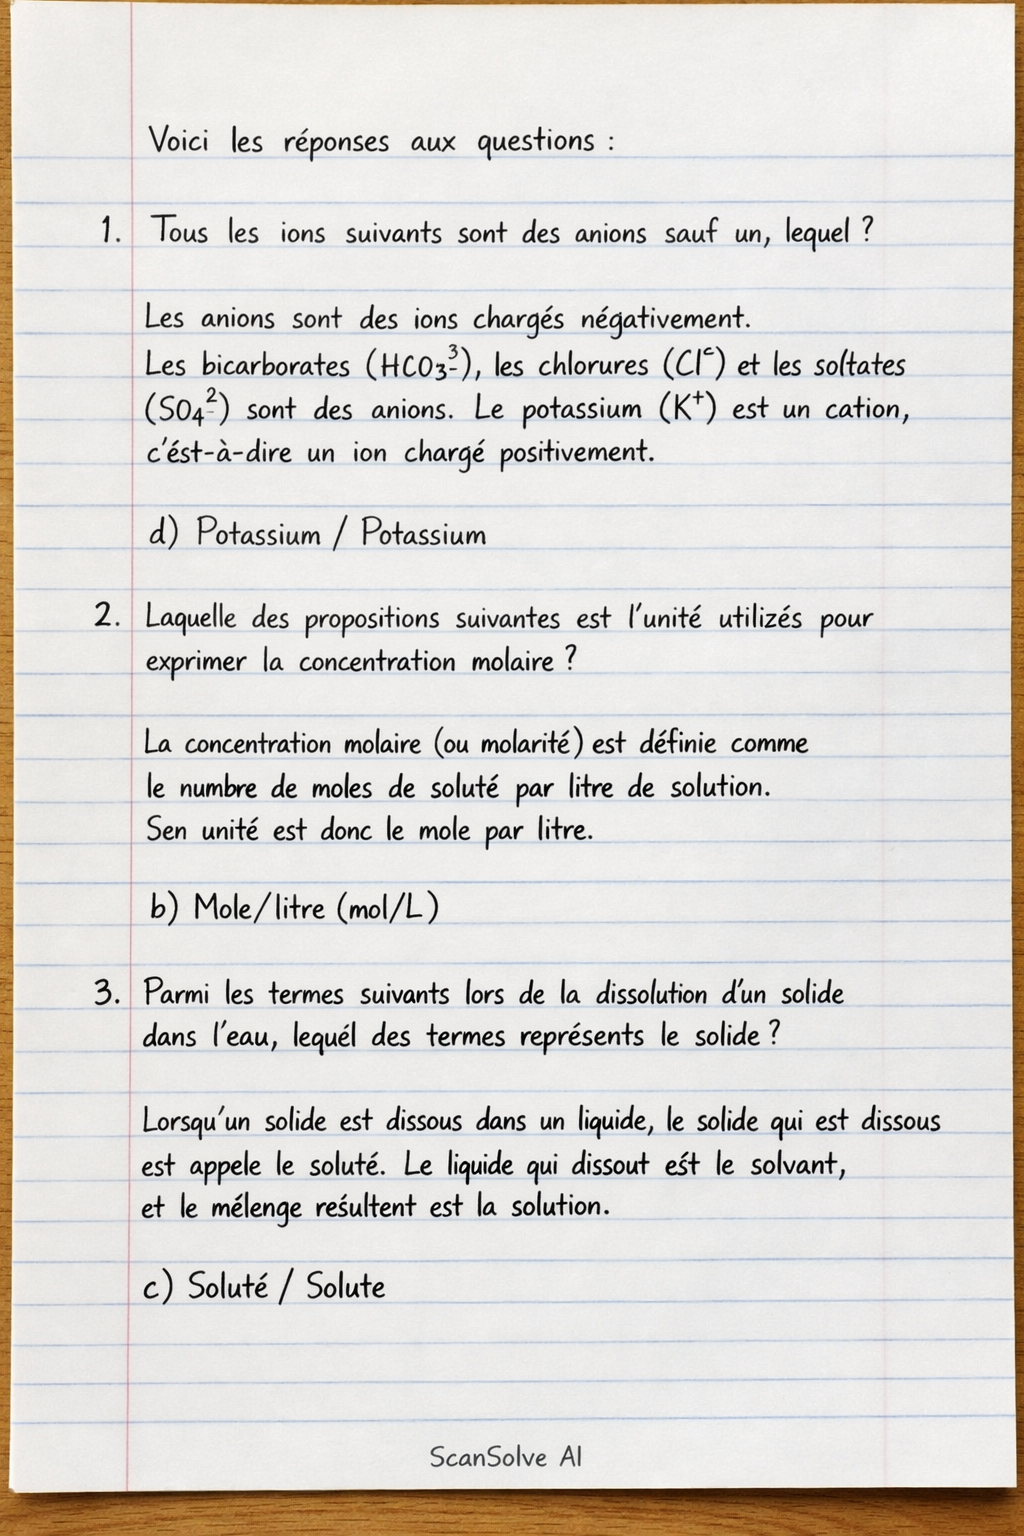 Voici les réponses aux questions :
1. Tous les ions suivants sont des anions sauf un, lequel ?
Les anions sont des ions chargés négativement.
Les bicarborates (HCO₃³⁻), les chlorures (Clᶜ) et les soltates
(SO₄²⁻) sont des anions. Le potassium (K⁺) est un cation,
c'ést-à-dire un ion chargé positivement.
d) Potassium / Potassium
2. Laquelle des propositions suivantes est l'unité utilizés pour
exprimer la concentration molaire ?
La concentration molaire (ou molarité) est définie comme
le numbre de moles de soluté par litre de solution.
Sen unité est donc le mole par litre.
b) Mole/litre (mol/L)
3. Parmi les termes suivants lors de la dissolution d'un solide
dans l'eau, lequél des termes représents le solide ?
Lorsqu'un solide est dissous dans un liquide, le solide qui est dissous
est appele le soluté. Le liquide qui dissout eśt le solvant,
et le mélenge reśultent est la solution.
c) Soluté / Solute
ScanSolve AI